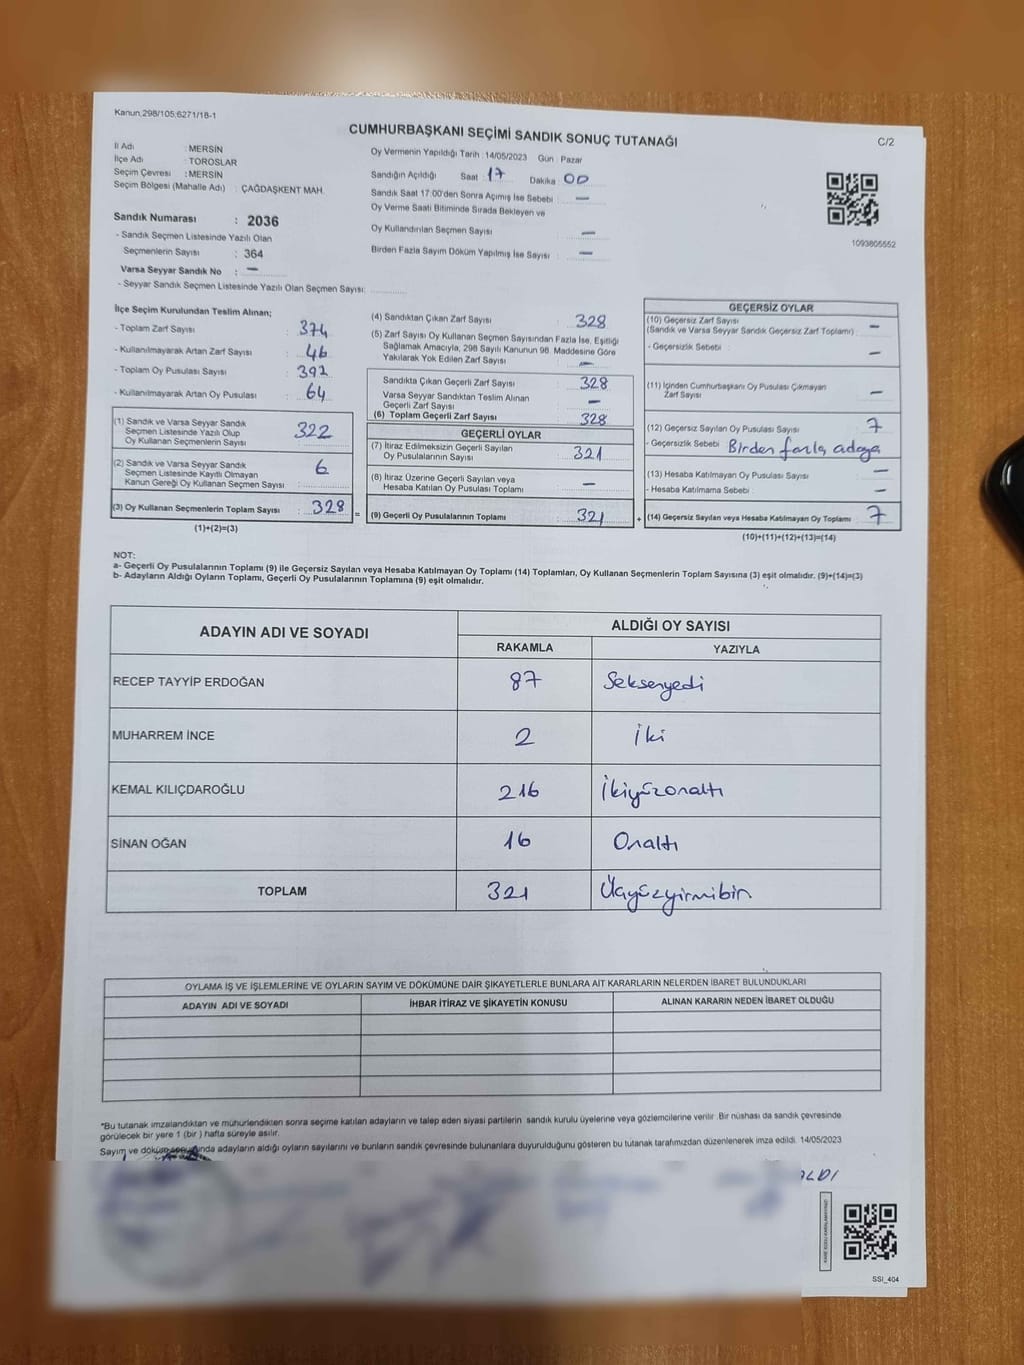 Kanun,298/105;6271/18-1
CUMHURBAŞKANI SEÇİMİ SANDIK SONUÇ TUTANAĞI
C/2
İl Adı : MERSİN
İlçe Adı : TOROSLAR
Seçim Çevresi : MERSİN
Seçim Bölgesi (Mahalle Adı) : ÇAĞDAŞKENT MAH.
Sandık Numarası : 2036
- Sandık Seçmen Listesinde Yazılı Olan
Seçmenlerin Sayısı : 364
Varsa Seyyar Sandık No : –
- Seyyar Sandık Seçmen Listesinde Yazılı Olan Seçmen Sayısı:
Oy Vermenin Yapıldığı Tarih : 14/05/2023 Gün : Pazar
Sandığın Açıldığı Saat : 17 Dakika : 00
Sandık Saat 17:00'den Sonra Açımış İse Sebebi : –
Oy Verme Saati Bitiminde Sırada Bekleyen ve
Oy Kullandırılan Seçmen Sayısı : –
Birden Fazla Sayım Döküm Yapılmış İse Sayısı : –
1093805552
İlçe Seçim Kurulundan Teslim Alınan;
- Toplam Zarf Sayısı : 374
- Kullanılmayarak Artan Zarf Sayısı : 46
- Toplam Oy Pusulası Sayısı : 392
- Kullanılmayarak Artan Oy Pusulası : 64
(1) Sandık ve Varsa Seyyar Sandık
Seçmen Listesinde Yazılı Olup
Oy Kullanan Seçmenlerin Sayısı : 322
(2) Sandık ve Varsa Seyyar Sandık
Seçmen Listesinde Kayıtlı Olmayan
Kanun Gereği Oy Kullanan Seçmen Sayısı : 6
(3) Oy Kullanan Seçmenlerin Toplam Sayısı : 328 =
(1)+(2)=(3)
(4) Sandıktan Çıkan Zarf Sayısı : 328
(5) Zarf Sayısı Oy Kullanan Seçmen Sayısından Fazla İse, Eşitliği
Sağlamak Amacıyla, 298 Sayılı Kanunun 98. Maddesine Göre
Yakılarak Yok Edilen Zarf Sayısı : –
Sandıkta Çıkan Geçerli Zarf Sayısı : 328
Varsa Seyyar Sandıktan Teslim Alınan
Geçerli Zarf Sayısı : –
(6) Toplam Geçerli Zarf Sayısı : 328
GEÇERLİ OYLAR
(7) İtiraz Edilmeksizin Geçerli Sayılan
Oy Pusulalarının Sayısı : 321
(8) İtiraz Üzerine Geçerli Sayılan veya
Hesaba Katılan Oy Pusulası Toplamı : –
(9) Geçerli Oy Pusulalarının Toplamı : 321 +
GEÇERSİZ OYLAR
(10) Geçersiz Zarf Sayısı
(Sandık ve Varsa Seyyar Sandık Geçersiz Zarf Toplamı) : –
- Geçersizlik Sebebi : –
(11) İçinden Cumhurbaşkanı Oy Pusulası Çıkmayan
Zarf Sayısı : –
(12) Geçersiz Sayılan Oy Pusulası Sayısı : 7
- Geçersizlik Sebebi : Birden fazla adaya
(13) Hesaba Katılmayan Oy Pusulası Sayısı : –
- Hesaba Katılmama Sebebi : –
(14) Geçersiz Sayılan veya Hesaba Katılmayan Oy Toplamı : 7
(10)+(11)+(12)+(13)=(14)
NOT:
a- Geçerli Oy Pusulalarının Toplamı (9) ile Geçersiz Sayılan veya Hesaba Katılmayan Oy Toplamı (14) Toplamları, Oy Kullanan Seçmenlerin Toplam Sayısına (3) eşit olmalıdır. (9)+(14)=(3)
b- Adayların Aldığı Oyların Toplamı, Geçerli Oy Pusulalarının Toplamına (9) eşit olmalıdır.
ADAYIN ADI VE SOYADI ALDIĞI OY SAYISI
RAKAMLA YAZIYLA
RECEP TAYYİP ERDOĞAN 87 Seksenyedi
MUHARREM İNCE 2 İki
KEMAL KILIÇDAROĞLU 216 İkiyüzonaltı
SİNAN OĞAN 16 Onaltı
TOPLAM 321 Üçyüzyirmibir
OYLAMA İŞ VE İŞLEMLERİNE VE OYLARIN SAYIM VE DÖKÜMÜNE DAİR ŞİKAYETLERLE BUNLARA AİT KARARLARIN NELERDEN İBARET BULUNDUKLARI
ADAYIN ADI VE SOYADI İHBAR İTİRAZ VE ŞİKAYETİN KONUSU ALINAN KARARIN NEDEN İBARET OLDUĞU
*Bu tutanak imzalandıktan ve mühürlendikten sonra seçime katılan adayların ve talep eden siyasi partilerin sandık kurulu üyelerine veya gözlemcilerine verilir. Bir nüshası da sandık çevresinde
görülecek bir yere 1 (bir ) hafta süreyle asılır.
Sayım ve döküm sonucunda adayların aldığı oyların sayılarını ve bunların sandık çevresinde bulunanlara duyurulduğunu gösteren bu tutanak tarafımızdan düzenlenerek imza edildi. 14/05/2023
SSI_404